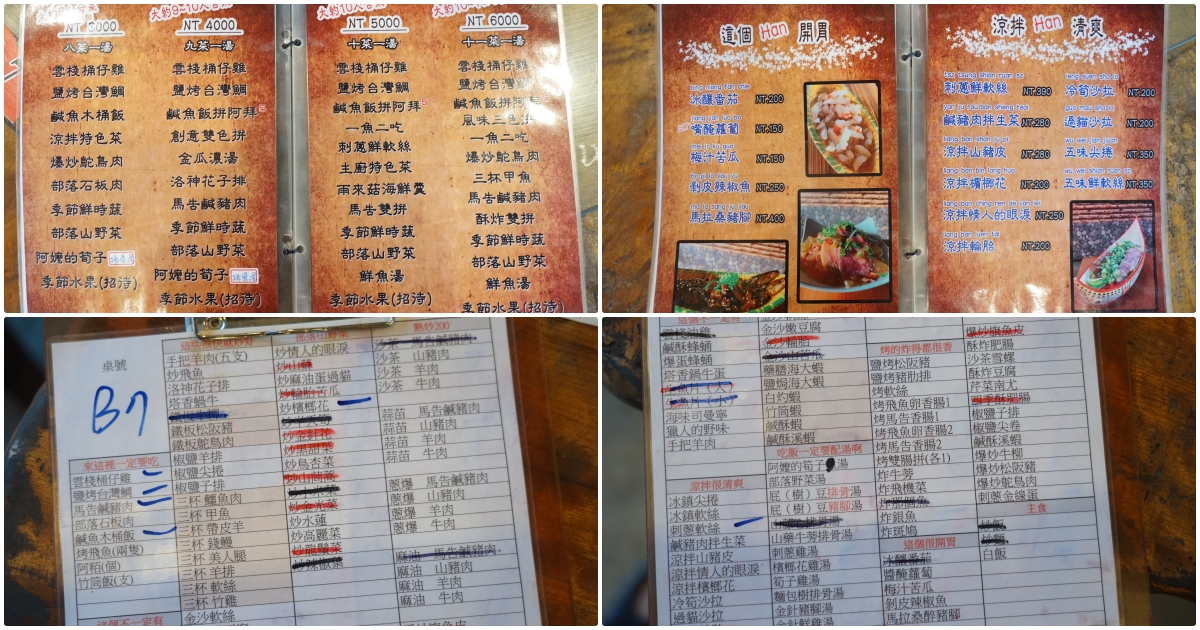 大約9~10人合菜
NT 4000
九菜一湯
雲棧桶仔雞
鹽烤台灣鯛
鹹魚飯拼阿拜
創意雙色拼
金瓜濃湯
洛神花子排
馬告鹹豬肉
季節鮮時蔬
部落山野菜
阿嬤的筍子
季節水果(招待)
NT 3000
八菜一湯
雲棧桶仔雞
鹽烤台灣鯛
鹹魚木桶飯
涼拌特色菜
爆炒鴕鳥肉
部落石板肉
季節鮮時蔬
部落山野菜
阿嬤的筍子
季節水果(招待)
大約10人合菜
NT 5000
十菜一湯
雲棧桶仔雞
鹽烤台灣鯛
鹹魚飯拼阿拜
一魚二吃
刺蔥鮮軟絲
主廚特色菜
雨來菇海鮮羹
馬告雙拼
季節鮮時蔬
部落山野菜
鮮魚湯
季節水果(招待)
NT 6000
十一菜一湯
雲棧桶仔雞
鹽烤台灣鯛
鹹魚飯拼阿拜
風味三色拼
一魚二吃
爆炒鴕鳥肉
三杯甲魚
馬告鹹豬肉
酥炸雙拼
季節鮮時蔬
部落山野菜
鮮魚湯
季節水果(招待)
這個 Han 開胃
冰釀番茄 NT.200
嘴醃蘿蔔 NT.150
梅汁苦瓜 NT.150
剝皮辣椒魚 NT.250
馬拉桑豬腳 NT.400
涼拌 Han 清爽
刺蔥鮮軟絲 NT.390
鹹豬肉拌生菜 NT.280
涼拌山豬皮 NT.280
涼拌檳榔花 NT.200
涼拌情人的眼淚 NT.250
涼拌輪胎 NT.200
冷筍沙拉 NT.200
過貓沙拉 NT.200
五味尖捲 NT.350
五味鮮軟絲 NT.350
桌號
B7
來這裡一定要吃
雲棧桶仔雞
鹽烤台灣鯛
馬告鹹豬肉
部落石板肉
鹹魚木桶飯
烤飛魚(兩隻)
阿粨(個)
竹筒飯(支)
這個不一定有
手把羊肉(五支)
炒飛魚
洛神花子排
塔香蝸牛
鐵板松阪豬
鐵板鴕鳥肉
椒鹽羊排
椒鹽尖捲
椒鹽子排
三杯 鱷魚肉
三杯 甲魚
三杯 帶皮羊
三杯 錢鰻
三杯 美人腿
三杯 羊排
三杯 軟絲
三杯 竹雞
金沙軟絲
部落山野菜
炒情人的眼淚
炒山蘇
炒麻油蛋過貓
炒輪胎苦瓜
炒檳榔花
炒金針花
炒黑甜菜
炒烏杏菜
炒水蓮
炒高麗菜
炒龍鬚菜
熱炒200
沙茶 馬告鹹豬肉
沙茶 山豬肉
沙茶 羊肉
沙茶 牛肉
蒜苗 馬告鹹豬肉
蒜苗 山豬肉
蒜苗 羊肉
蒜苗 牛肉
蔥爆 馬告鹹豬肉
蔥爆 山豬肉
蔥爆 羊肉
蔥爆 牛肉
麻油 馬告鹹豬肉
麻油 山豬肉
麻油 羊肉
麻油 牛肉
雲棧油雞
鹹酥蜂蛹
爆蛋蜂蛹
塔香蝸牛蛋
海味司曼寧
獵人的野味
手把羊肉
涼拌很清爽
冰鎮尖捲
冰鎮軟絲
刺蔥軟絲
鹹豬肉拌生菜
涼拌山豬皮
涼拌情人的眼淚
涼拌檳榔花
冷筍沙拉
過貓沙拉
金沙嫩豆腐
金沙輪胎
金沙山苦瓜
藥膳海大蝦
鹽焗海大蝦
白灼蝦
竹筒蝦
鹹酥蝦
鹹酥溪蝦
吃飯一定要配湯啊
阿嬤的筍子 湯
部落野菜湯
屁（樹）豆排骨湯
屁（樹）豆豬腳湯
山藥牛蒡排骨湯
刺蔥雞湯
檳榔花雞湯
筍子雞湯
麵包樹排骨湯
金針豬腳湯
金針鮮雞湯
烤的炸得都很香
鹽烤松阪豬
鹽烤豬肋排
烤軟絲
烤飛魚卵香腸1
烤馬告香腸1
烤飛魚卵香腸2
烤馬告香腸2
烤雙腸拼(各1)
炸牛蒡
炸飛機菜
炸那個魚
炸銀魚
炸斑鳩
這個很開胃
冰釀番茄
醬醃蘿蔔
梅汁苦瓜
剝皮辣椒魚
馬拉桑醉豬腳
爆炒旗魚皮
酥炸肥腸
沙茶雪螺
酥炸豆腐
芹菜南尤
椒鹽子排
椒鹽尖卷
鹹酥溪蝦
爆炒牛柳
爆炒松阪豬
爆炒鴕鳥肉
刺蔥金線蛋
主食
炒飯
炒麵
白飯